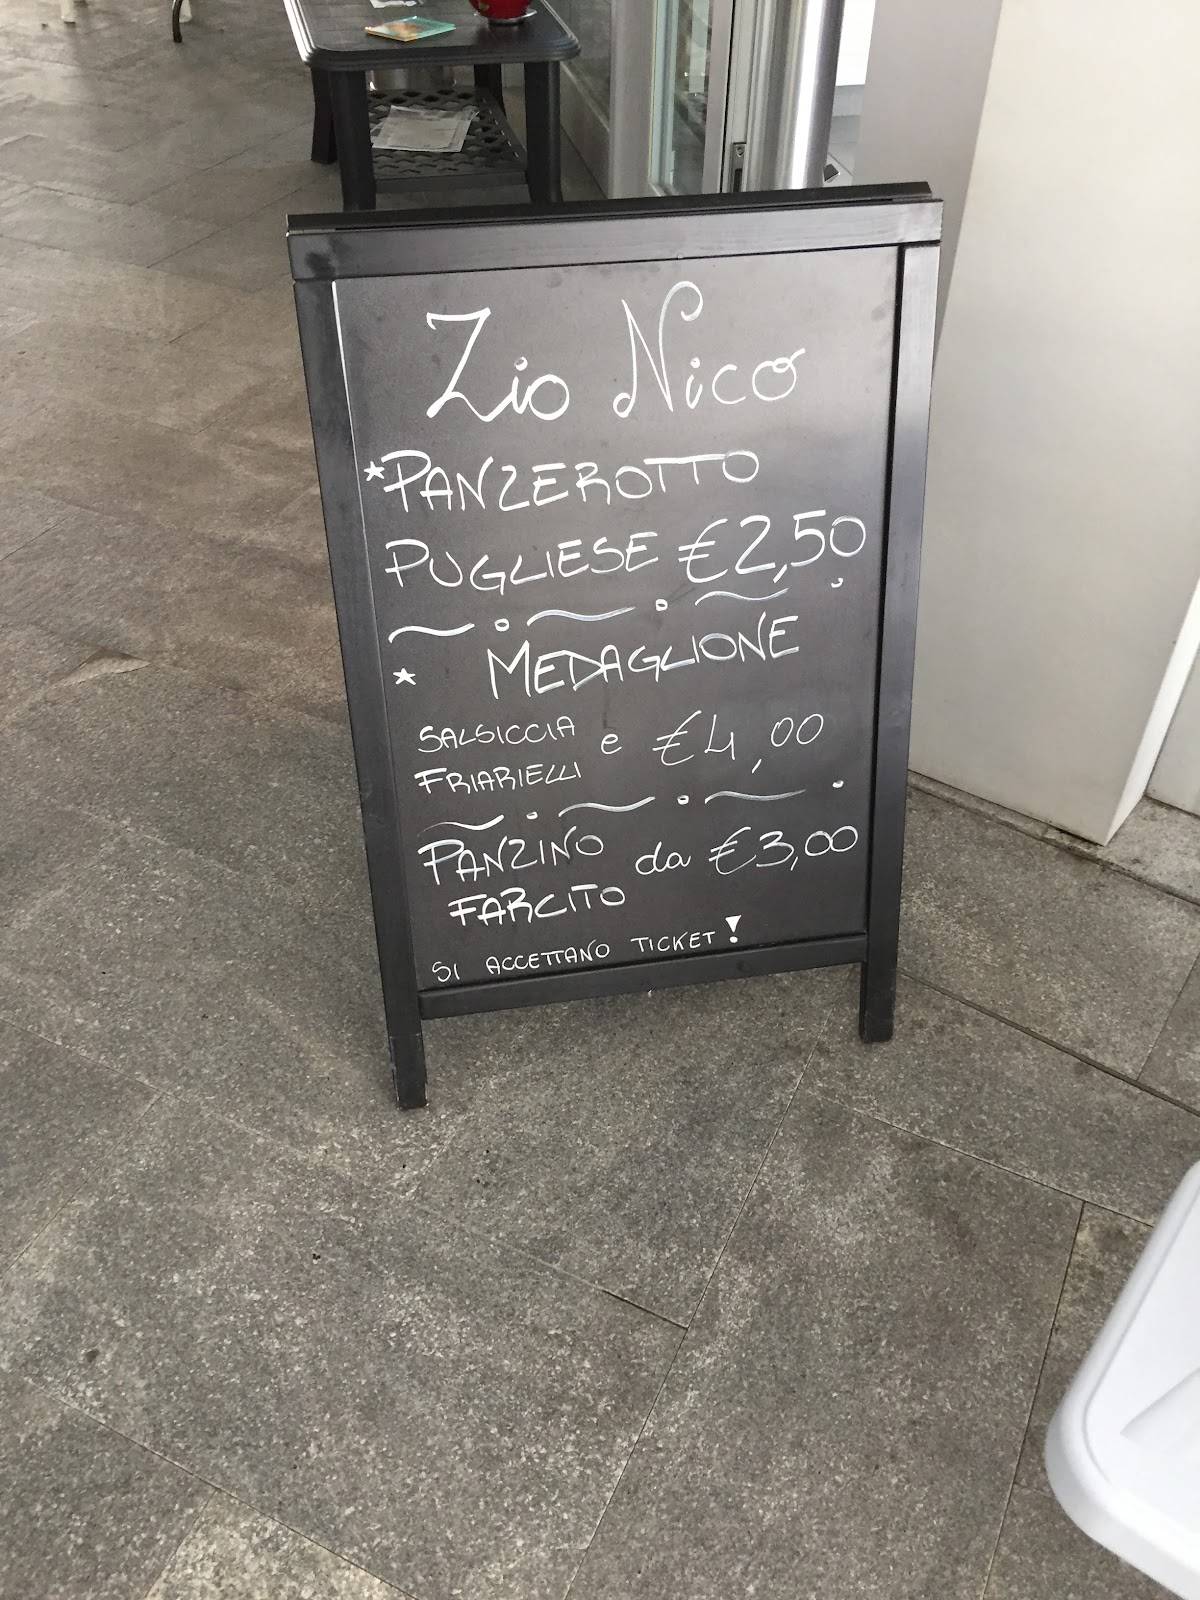 Zio Nico
*PANZEROTTO
PUGLIESE €2,50
* MEDAGLIONE
SALSICCIA e €4,00
FRIARIELLI
PANZINO da €3,00
FARCITO
SI ACCETTANO TICKET!